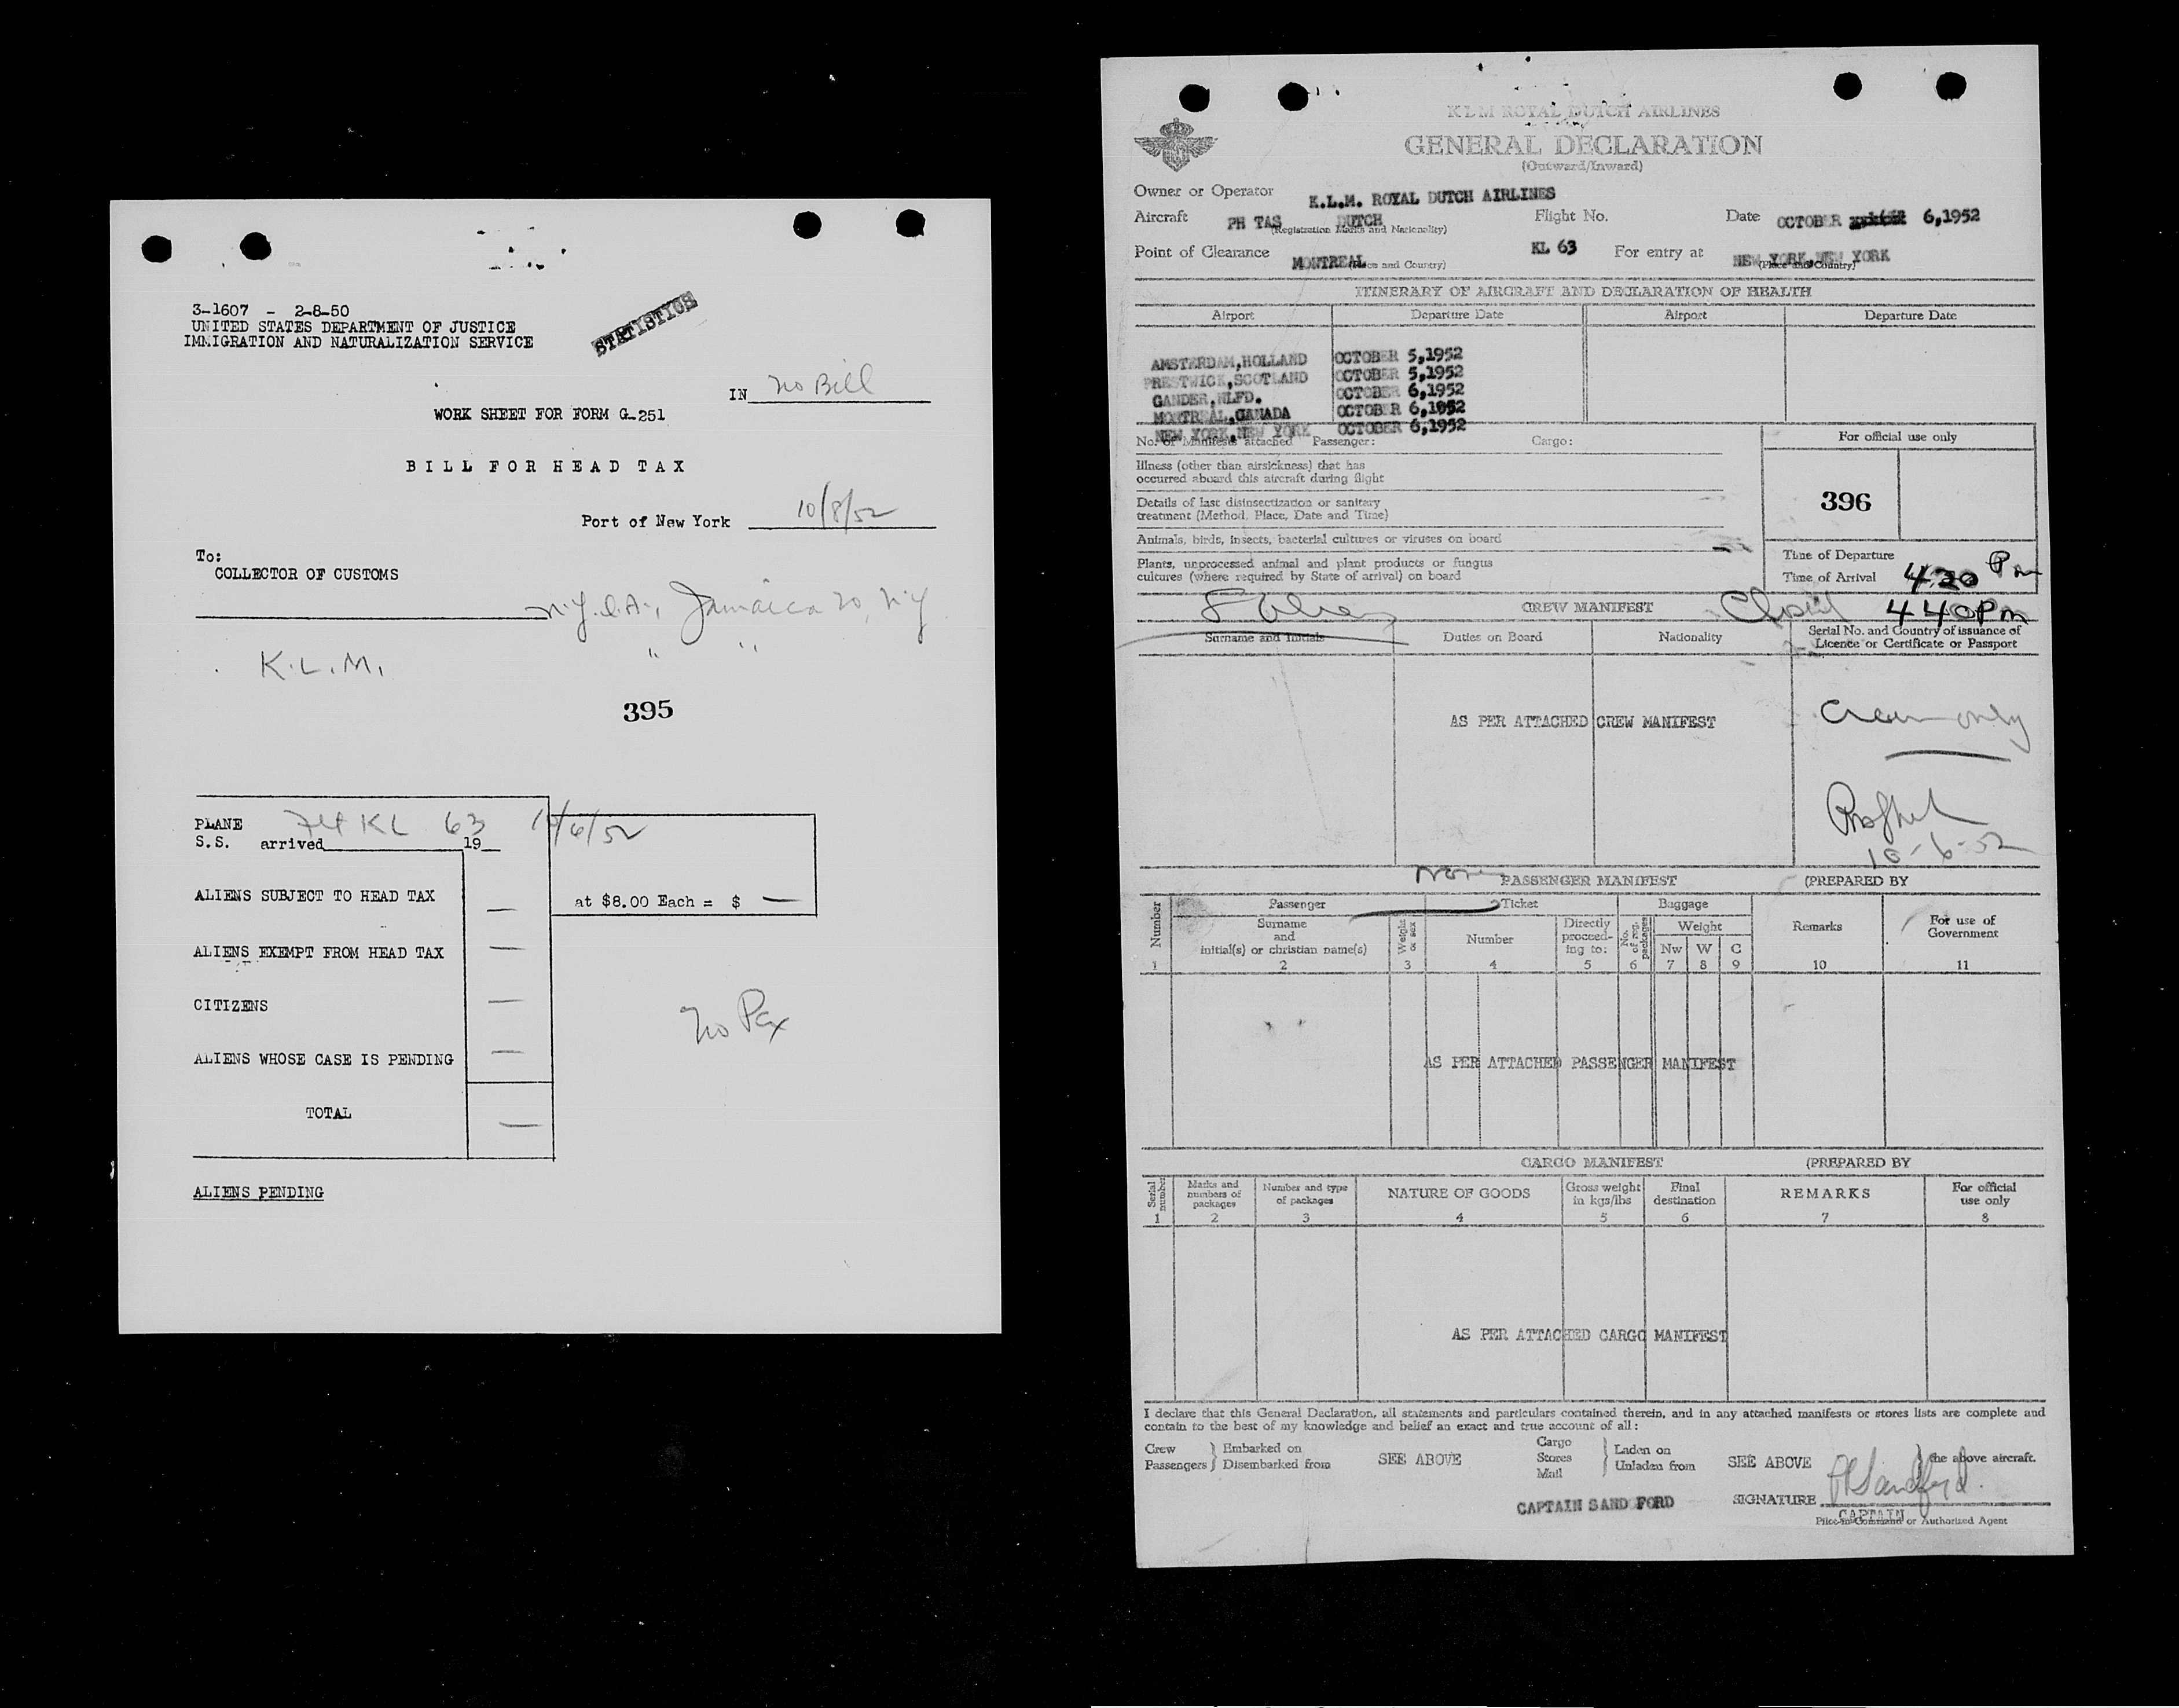 3-1607 - 2-8-50
UNITED STATES DEPARTMENT OF JUSTICE
IMMIGRATION AND NATURALIZATION SERVICE
STATISTICS
IN no Bill
WORK SHEET FOR FORM G-251
BILL FOR HEAD TAX
Port of New York 10/8/52
To:
COLLECTOR OF CUSTOMS
N.Y.I.A., Jamaica 20, N.Y
" "
K.L.M.
395
PLANE Flt KL 63 10/6/52
S.S. arrived 19
ALIENS SUBJECT TO HEAD TAX —
at $8.00 Each = $ —
ALIENS EXEMPT FROM HEAD TAX —
CITIZENS —
no Pax
ALIENS WHOSE CASE IS PENDING —
TOTAL —
ALIENS PENDING
KLM ROYAL DUTCH AIRLINES
GENERAL DECLARATION
(Outward/Inward)
Owner or Operator K.L.M. ROYAL DUTCH AIRLINES
Aircraft PH TAS DUTCH Flight No. Date OCTOBER 6,1952
(Registration Marks and Nationality)
Point of Clearance MONTREAL KL 63 For entry at NEW YORK,NEW YORK
(Place and Country) (Place and Country)
ITINERARY OF AIRCRAFT AND DECLARATION OF HEALTH
Airport Departure Date Airport Departure Date
AMSTERDAM,HOLLAND OCTOBER 5,1952
PRESTWICK,SCOTLAND OCTOBER 5,1952
GANDER,NLFD. OCTOBER 6,1952
MONTREAL,CANADA OCTOBER 6,1952
NEW YORK,NEW YORK OCTOBER 6,1952
No. of Manifests attached Passenger: Cargo:
For official use only
Illness (other than airsickness) that has
occurred aboard this aircraft during flight
Details of last disinsectization or sanitary
treatment (Method, Place, Date and Time)
396
Animals, birds, insects, bacterial cultures or viruses on board
Plants, unprocessed animal and plant products or fungus
cultures (where required by State of arrival) on board
Time of Departure
Time of Arrival 4:20 Pm
CREW MANIFEST
440 Pm
Surname and Initials Duties on Board Nationality Serial No. and Country of issuance of
Licence or Certificate or Passport
AS PER ATTACHED CREW MANIFEST
Crew only
10-6-52
None
PASSENGER MANIFEST (PREPARED BY
Number Passenger Ticket Baggage
Surname
and
initial(s) or christian name(s)
Weight or sex
Number
Directly
proceed-
ing to:
No. of reg. packages
Weight
Nw W C
Remarks
For use of
Government
1 2 3 4 5 6 7 8 9 10 11
AS PER ATTACHED PASSENGER MANIFEST
CARGO MANIFEST (PREPARED BY
Serial number
Marks and
numbers of
packages
Number and type
of packages
NATURE OF GOODS
Gross weight
in kgs/lbs
Final
destination
REMARKS
For official
use only
1 2 3 4 5 6 7 8
AS PER ATTACHED CARGO MANIFEST
I declare that this General Declaration, all statements and particulars contained therein, and in any attached manifests or stores lists are complete and
contain to the best of my knowledge and belief an exact and true account of all:
Crew
Passengers
Embarked on
Disembarked from
SEE ABOVE
Cargo
Stores
Mail
Laden on
Unladen from
SEE ABOVE
the above aircraft.
CAPTAIN SANDFORD SIGNATURE Sandford.
CAPTAIN
Pilot-in-Command or Authorized Agent